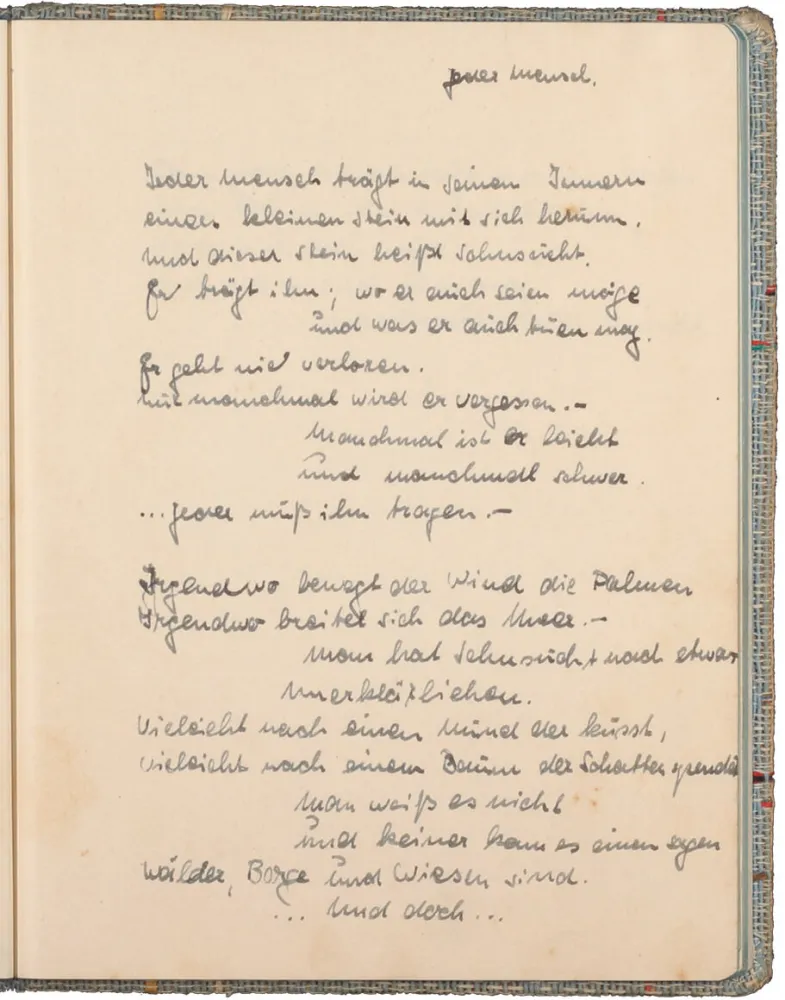 Jeder Mensch.
Jeder Mensch trägt in seinen Innern
einen kleinen Stein mit sich herum.
Und dieser Stein heißt Sehnsucht.
Er trägt ihn; wo er auch seien möge
und was er auch tuen mag.
Er geht nie verloren.
Nur manchmal wird er vergessen.-
Manchmal ist er leicht
und manchmal schwer.
...jeder muß ihn tragen.-
Irgendwo bewegt der Wind die Palmen
Irgendwo breitet sich das Meer.-
Man hat Sehnsucht nach etwas
Unerklärlichen.
Vieleicht nach einen Mund der küsst,
vieleicht nach einem Baum der Schatten spendet
Man weiß es nicht
und keiner kann es einen sagen
Wälder, Berge und Wiesen sind.
... Und doch...